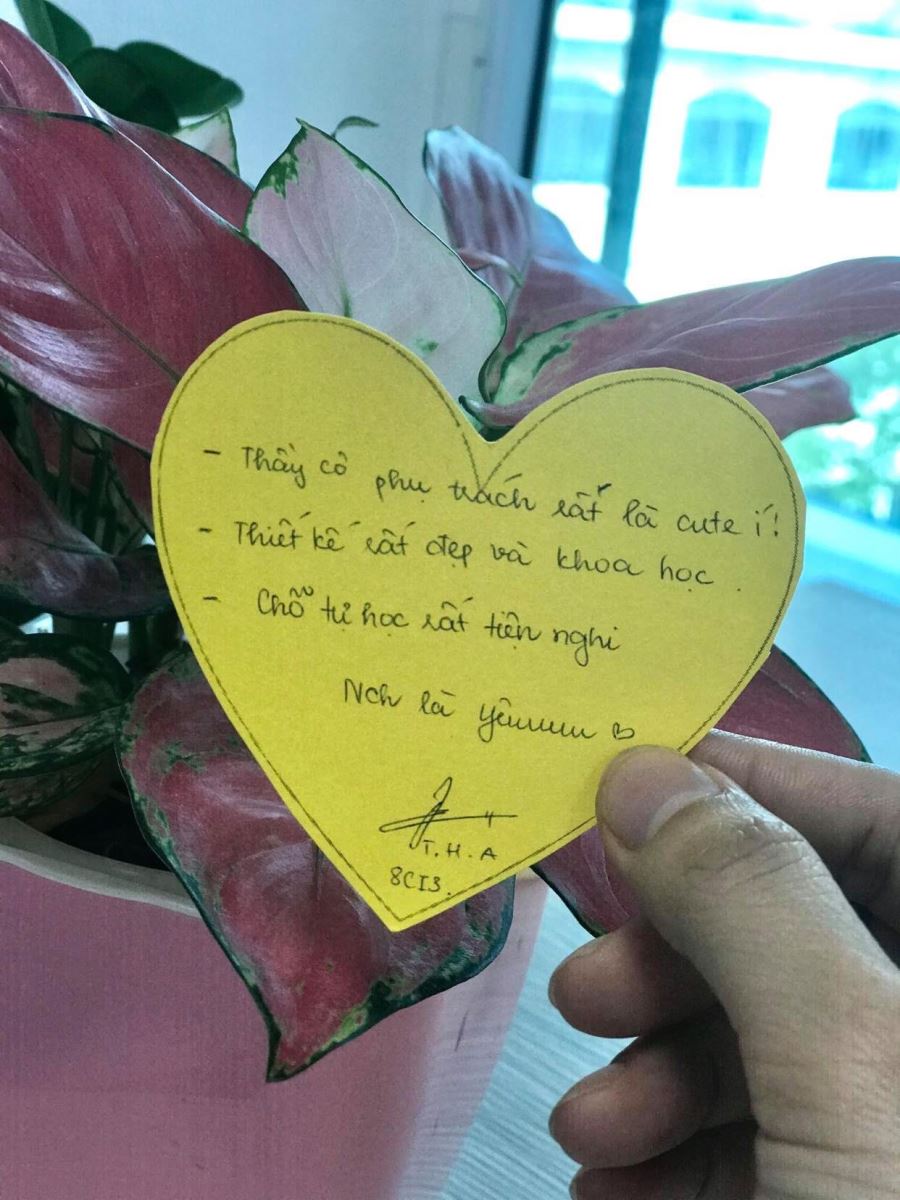 - Thầy cô phụ trách rất là cute í!
- Thiết kế rất đẹp và khoa học
- Chỗ tự học rất tiện nghi
Nch là yêuuuuu
T.H.A
8CI3.